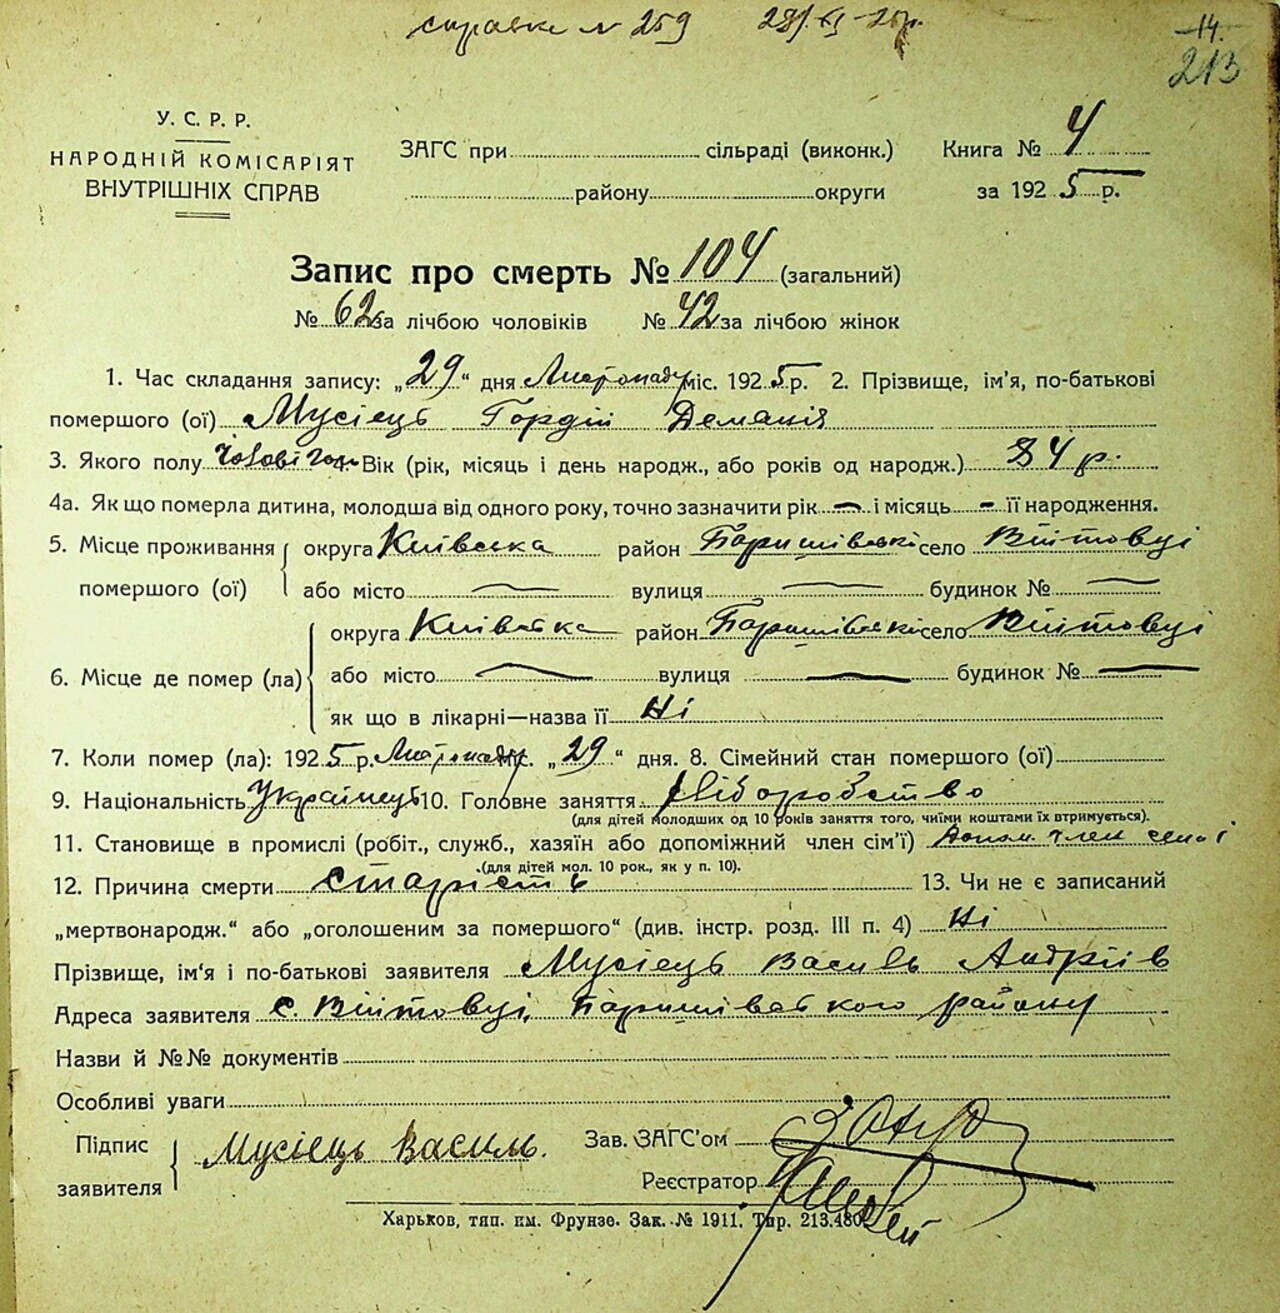 справка № 259
14.
213
У. С. Р. Р.
НАРОДНІЙ КОМІСАРІЯТ
ВНУТРІШНІХ СПРАВ
ЗАГС при сільраді (виконк.)
району округи
Книга № 4
за 1925 р.
Запис про смерть № 104 (загальний)
№ 62 за лічбою чоловіків № 42 за лічбою жінок
1. Час складання запису: „29“ дня Листопаду міс. 1925 р. 2. Прізвище, ім'я, по-батькові
помершого (ої) Мусіець Гордій Демянів
3. Якого полу чоловічого 4. Вік (рік, місяць і день народж., або років од народж.) 84 р.
4а. Як що померла дитина, молодша від одного року, точно зазначити рік — і місяць — її народження.
5. Місце проживання помершого (ої) округа Київська район Баришівський село Війтовці
або місто — вулиця — будинок № —
6. Місце де помер (ла) округа Київська район Баришівський село Війтовці
або місто — вулиця — будинок № —
як що в лікарні—назва її Ні
7. Коли помер (ла): 1925 р. Листопаду міс. „29“ дня. 8. Сімейний стан помершого (ої)
9. Національність Українець 10. Головне заняття хліборобство
(для дітей молодших од 10 років заняття того, чиїми коштами їх втримується).
11. Становище в промислі (робіт., служб., хазяїн або допоміжний член сім'ї) допом. член семї
(для дітей мол. 10 рок., як у п. 10).
12. Причина смерти старість 13. Чи не є записаний
„мертвонародж.“ або „оголошеним за помершого“ (див. інстр. розд. III п. 4) Ні
Прізвище, ім'я і по-батькові заявителя Мусіець Василь Андріїв
Адреса заявителя с. Війтовці, Баришівського району
Назви й №№ документів
Особливі уваги
Підпис заявителя Мусіець Василь.
Зав. ЗАГС'ом
Реєстратор
Харьков, тип. им. Фрунзе. Зак. № 1911. Тир. 213.480